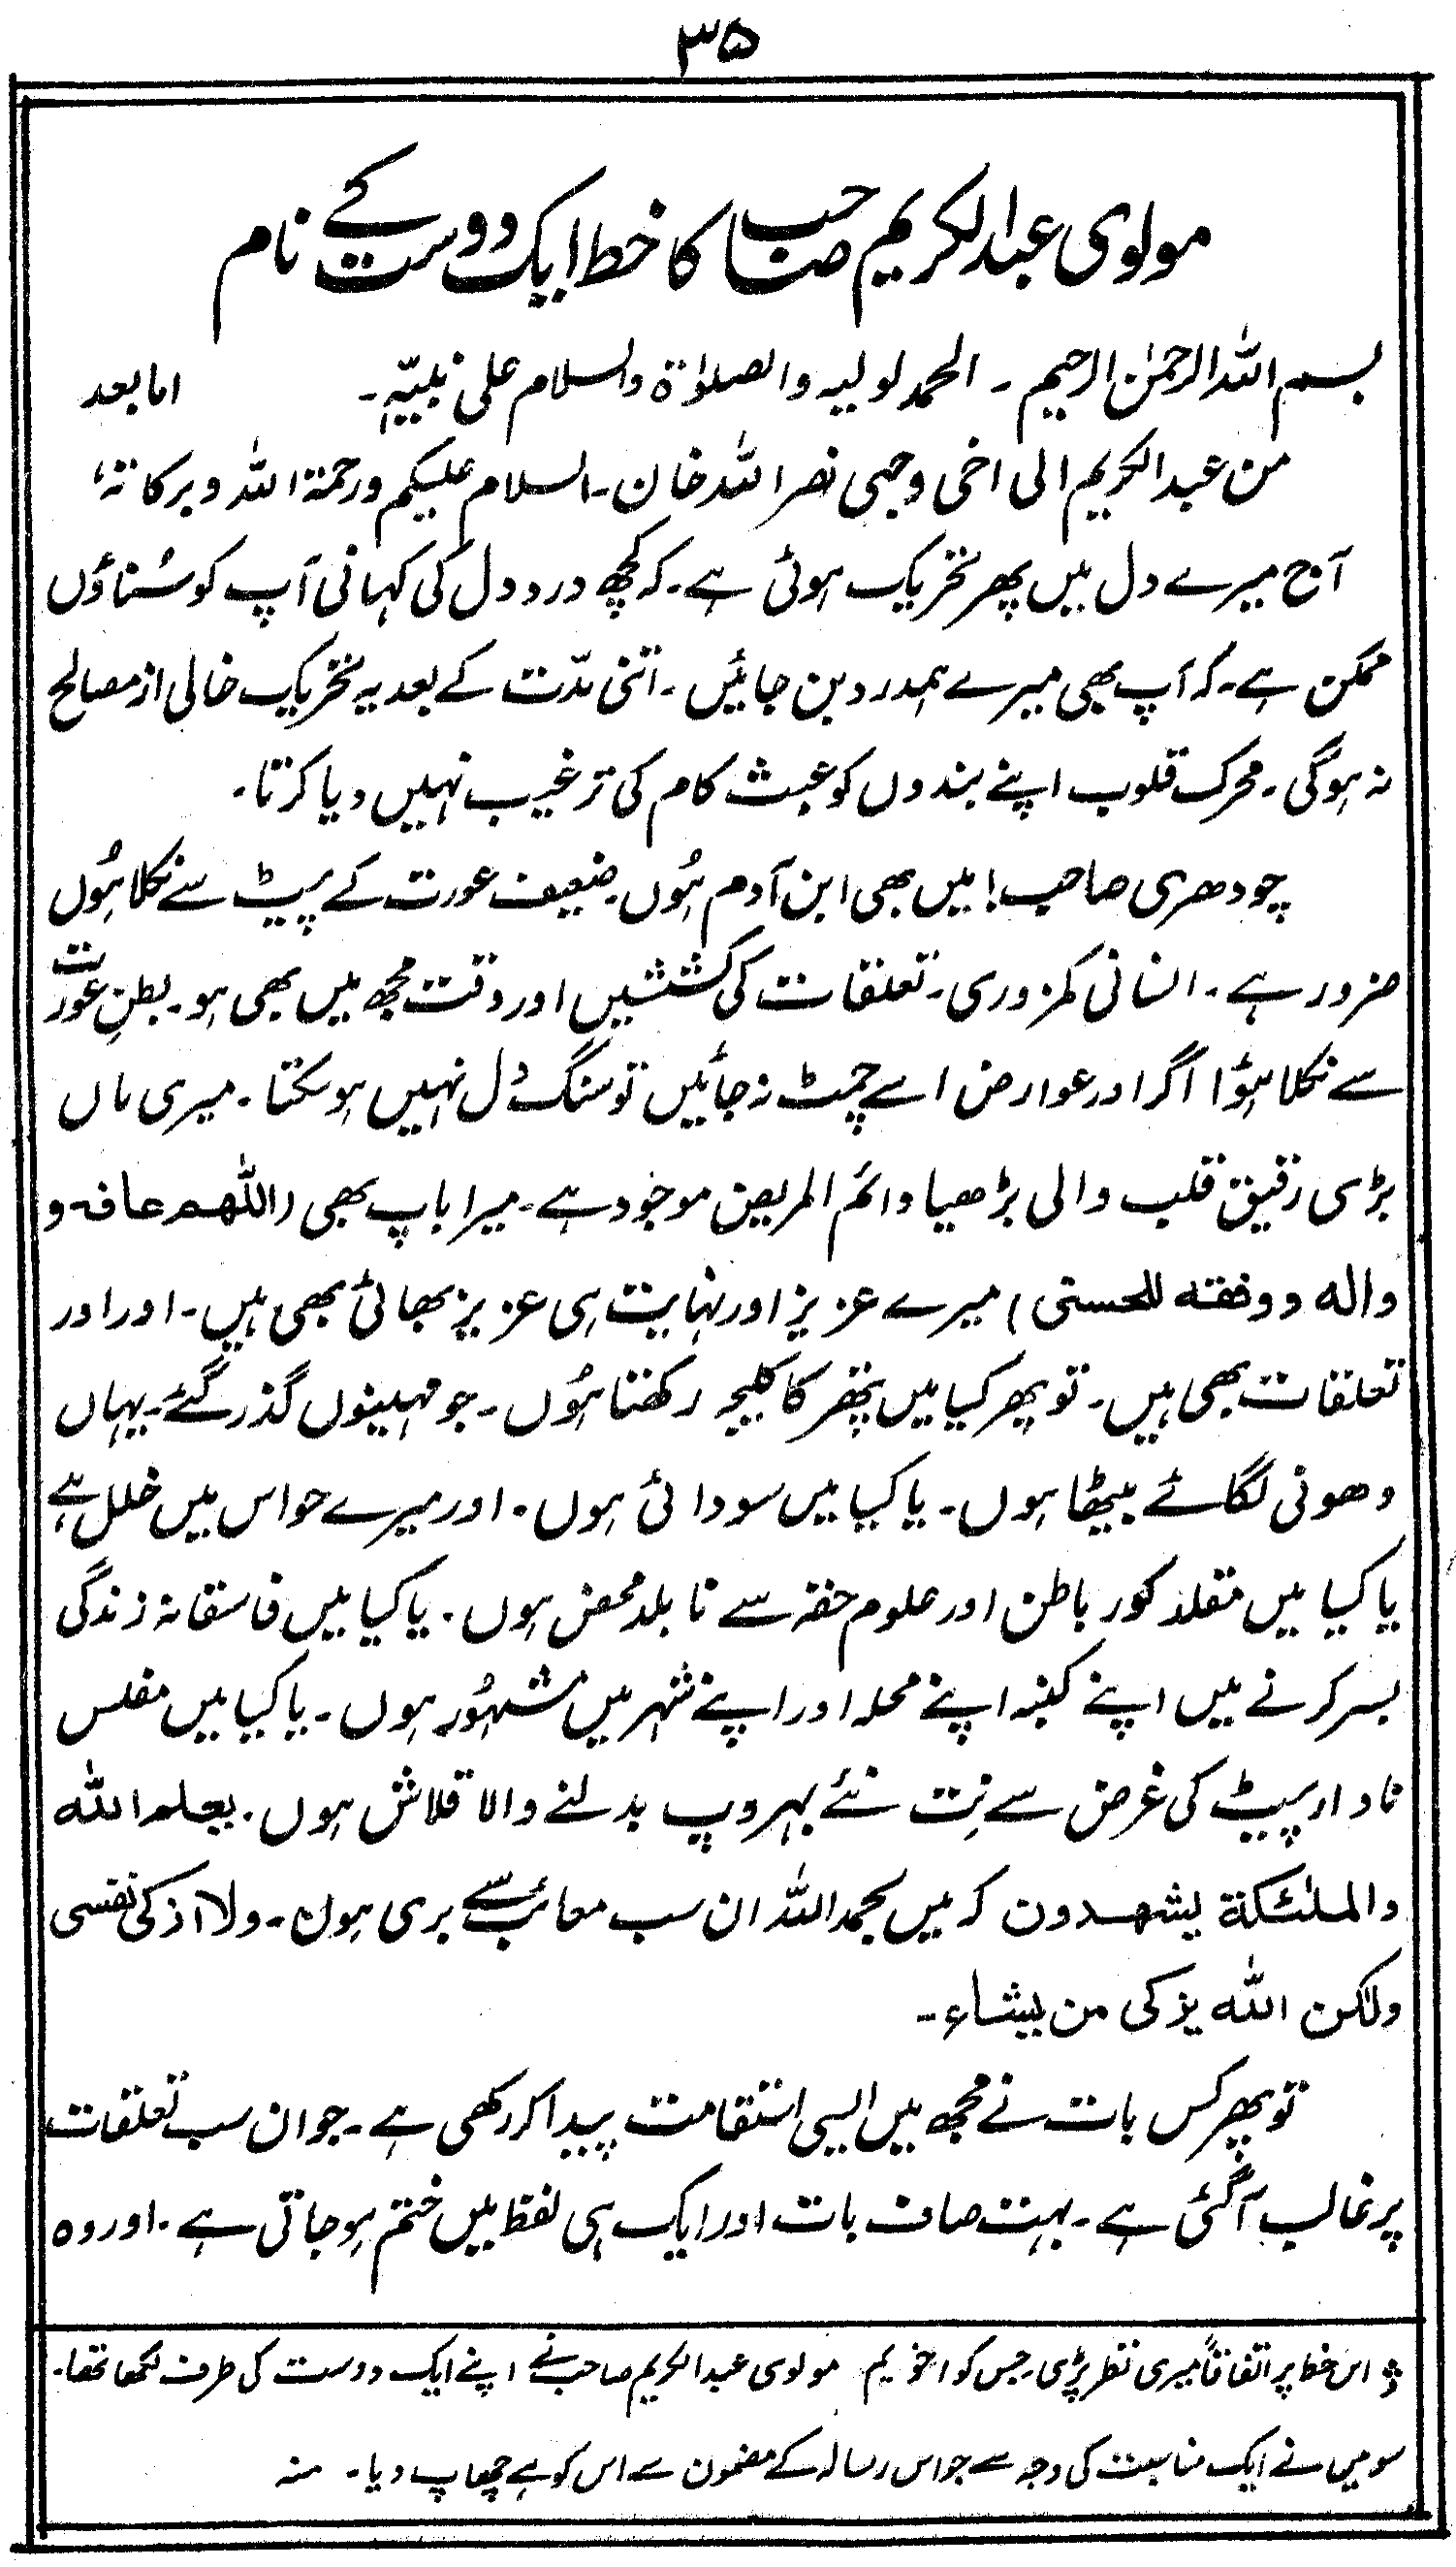 ۳۵
مولوی عبدالکریم صاحب کا خط ایک دوست کے نام
بسم اللہ الرحمٰن الرحیم ۔ الحمد لولیہ والصلوٰۃ والسلام علی نبیّہٖ ۔ اما بعد
من عبد الکریم الی اخی وحبی نصر اللہ خان ۔ السلام علیکم ورحمۃ اللہ وبرکاتہٗ
آج میرے دل میں پھر تحریک ہوئی ہے ۔ کہ کچھ درد دل کی کہانی آپ کو سُناؤں
ممکن ہے ۔ کہ آپ بھی میرے ہمدرد بن جائیں ۔ اتنی مدّت کے بعد یہ تحریک خالی از مصالح
نہ ہوگی ۔ محرک قلوب اپنے بندوں کو عبث کام کی ترغیب نہیں دیا کرتا ۔
چودھری صاحب! میں بھی ابن آدم ہُوں ۔ ضعیف عورت کے پیٹ سے نکلا ہُوں
ضرور ہے ۔ انسانی کمزوری ۔ تعلقات کی کششیں اور رقت مجھ میں بھی ہو ۔ بطنِ عورت
سے نکلا ہوٴا اگر اور عوارض اسے چمٹ نہ جائیں تو سنگ دل نہیں ہو سکتا ۔ میری ماں
بڑی رقیق قلب والی بڑھیا دائم المریض موجود ہے ۔ میرا باپ بھی (اللھم عافہ و
والہ ووفقہ للحسنی) میرے عزیز اور نہایت ہی عزیز بھائی بھی ہیں ۔ اور اور
تعلقات بھی ہیں ۔ تو پھر کیا میں پتھر کا کلیجہ رکھتا ہُوں ۔ جو مہینوں گذر گئے ۔ یہاں
دھونی لگائے بیٹھا ہوں ۔ یا کیا میں سودائی ہوں ۔ اور میرے حواس میں خلل ہے
یا کیا میں مقلد کور باطن اور علوم حقہ سے نابلد محض ہوں ۔ یا کیا میں فاسقانہ زندگی
بسر کرنے میں اپنے کنبہ اپنے محلہ اور اپنے شہر میں مشہُور ہوں ۔ یا کیا میں مفلس
نادار پیٹ کی غرض سے نِت نئے بہروپ بدلنے والا قلاش ہوں ۔ یعلم اللہ
والملٰئکۃ یشھدون کہ میں بحمد اللہ ان سب معائب سے بری ہوں ۔ ولا ازکی نفسی
ولٰکن اللہ یزکی من یشاء ۔
تو پھر کس بات نے مجھ میں ایسی استقامت پیدا کر رکھی ہے ۔ جو ان سب تعلقات
پر غالب آگئی ہے ۔ بہت صاف بات اور ایک ہی لفظ میں ختم ہو جاتی ہے ۔ اور وہ
اس خط پر اتفاقاً میری نظر پڑی جس کو اخویم مولوی عبدالکریم صاحب نے اپنے ایک دوست کی طرف لکھا تھا ۔
سو میں نے ایک مناسبت کی وجہ سے جو اس رسالہ کے مضمون سے اس کو ہے چھاپ دیا ۔ منہ